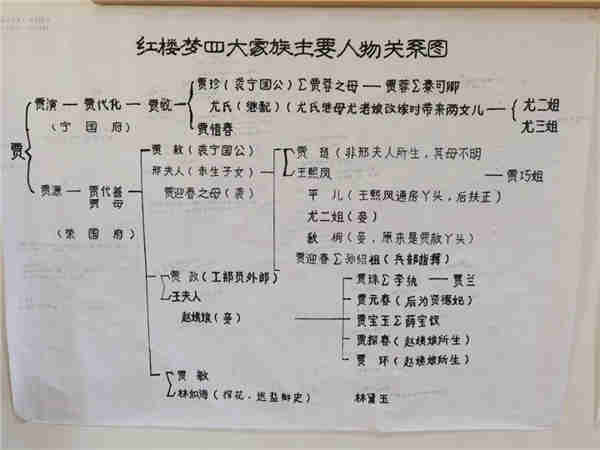 红楼梦四大家族主要人物关系图
贾珍（袭宁国公）∑贾蓉之母——贾蓉∑秦可卿
贾演——贾代化——贾敬
尤氏（继配）（尤氏继母尤老娘改嫁时带来两女儿——尤二姐
尤三姐
（宁国府）
贾惜春
贾
贾 赦（袭宁国公）
贾 琏（非邢夫人所生，其母不明
邢夫人（未生子女）
王熙凤——贾巧姐
贾源——贾代善
贾 母
贾迎春之母（妾）
平 儿（王熙凤通房丫头，后扶正）
尤二姐（妾）
（荣国府）
秋 桐（妾，原来是贾赦丫头）
贾迎春∑孙绍祖（兵部指挥）
贾 政（工部员外郎）
贾珠∑李纨——贾兰
王夫人
贾元春（后为贤德妃）
赵姨娘（妾）
贾宝玉∑薛宝钗
贾探春（赵姨娘所生）
贾 环（赵姨娘所生）
贾 敏
林如海（探花，巡盐御史）
林黛玉